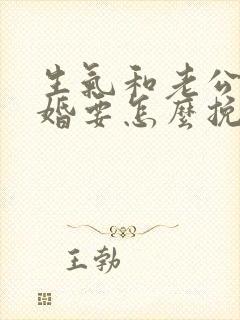 生氣和老公
婚要怎麼挽
王勃